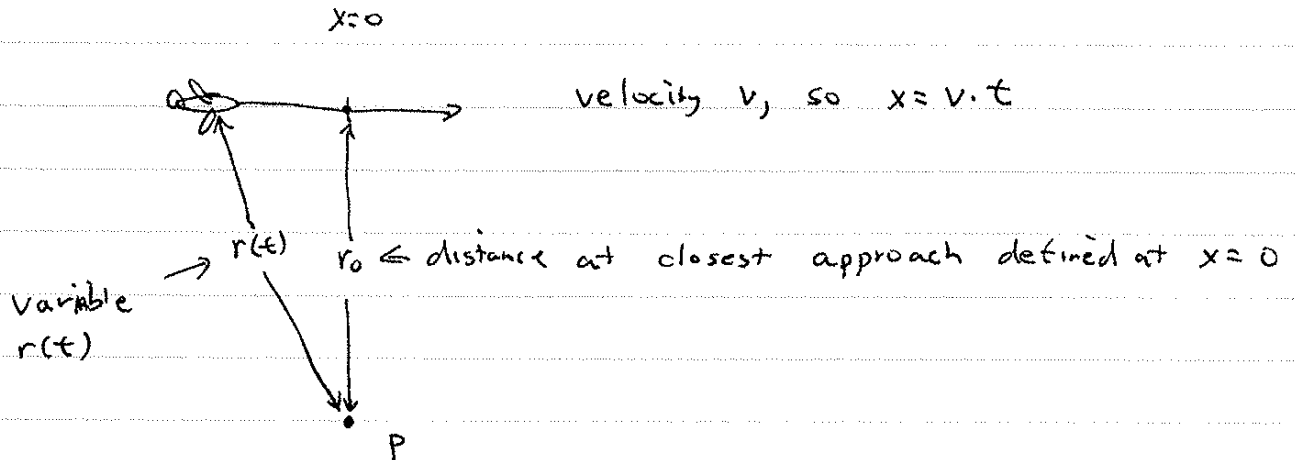 x=0
velocity v, so x = v · t
r(t) r₀ ⇐ distance at closest approach defined at x = 0
variable
r(t)
P